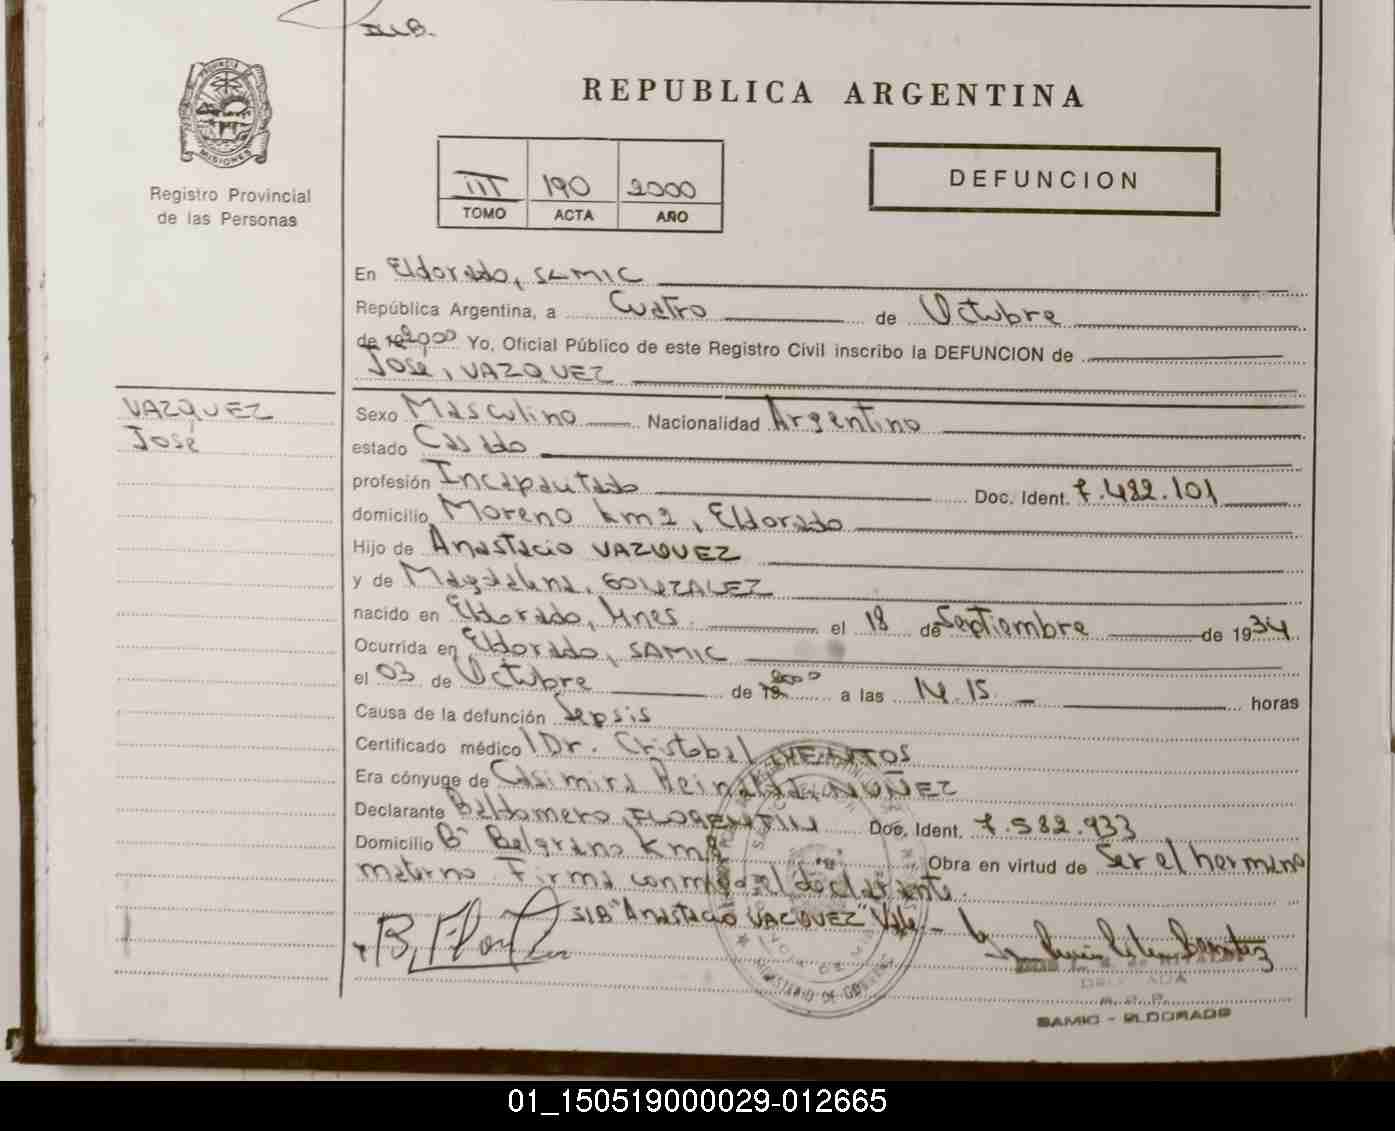 SIB.
PROVINCIA DE
MISIONES
Registro Provincial
de las Personas
REPUBLICA ARGENTINA
III 190 2000
TOMO ACTA AÑO
DEFUNCION
En Eldorado, SAMIC
República Argentina, a Cuatro de Octubre
de 2000 Yo, Oficial Público de este Registro Civil inscribo la DEFUNCION de
José, VAZQUEZ
VAZQUEZ
José
Sexo Masculino Nacionalidad Argentino
estado Casado
profesión Incapautado Doc. Ident. 7.482.101
domicilio Moreno km 2, Eldorado
Hijo de Anastacio VAZQUEZ
y de Magdalena, GONZALEZ
nacido en Eldorado, Mnes el 18 de Septiembre de 1934
Ocurrida en Eldorado, SAMIC
el 03 de Octubre de 2000 a las 14.15 horas
Causa de la defunción Sepsis
Certificado médico Dr. Cristobal
Era cónyuge de Casimira Reinalda, NUÑEZ
Declarante Baldomero, FLORENTIN Doc. Ident. 7.582.933
Domicilio B° Belgrano Km 2 Obra en virtud de Ser el hermano
materno. Firma conmigo el declarante.
S/B "Anastacio VAZQUEZ" Vale
B. Floren
MINISTERIO DE GOBIERNO
DELEGADA
R.P.P.
SAMIC - ELDORADO
01_150519000029-012665